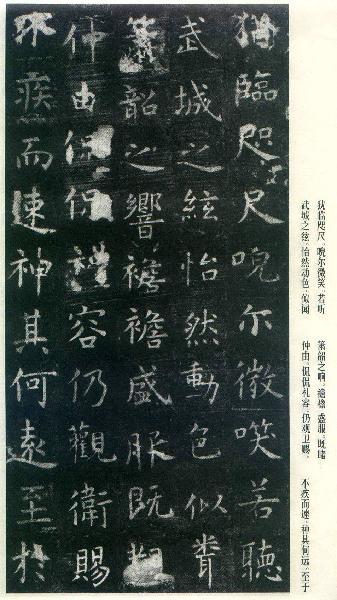 猶臨咫尺唍尔微咲若聽
武城之絃怡然動色似聞
簫韶之響襜襜盛服既睹
仲由侃侃禮容仍觀衛賜
不疾而速神其何遠至於
犹临咫尺,唍尔微笑。若听
武城之弦,怡然动色,似闻
箫韶之响,襜襜盛服,既睹
仲由,侃侃礼容,仍观卫赐。
不疾而速,神其何远,至于